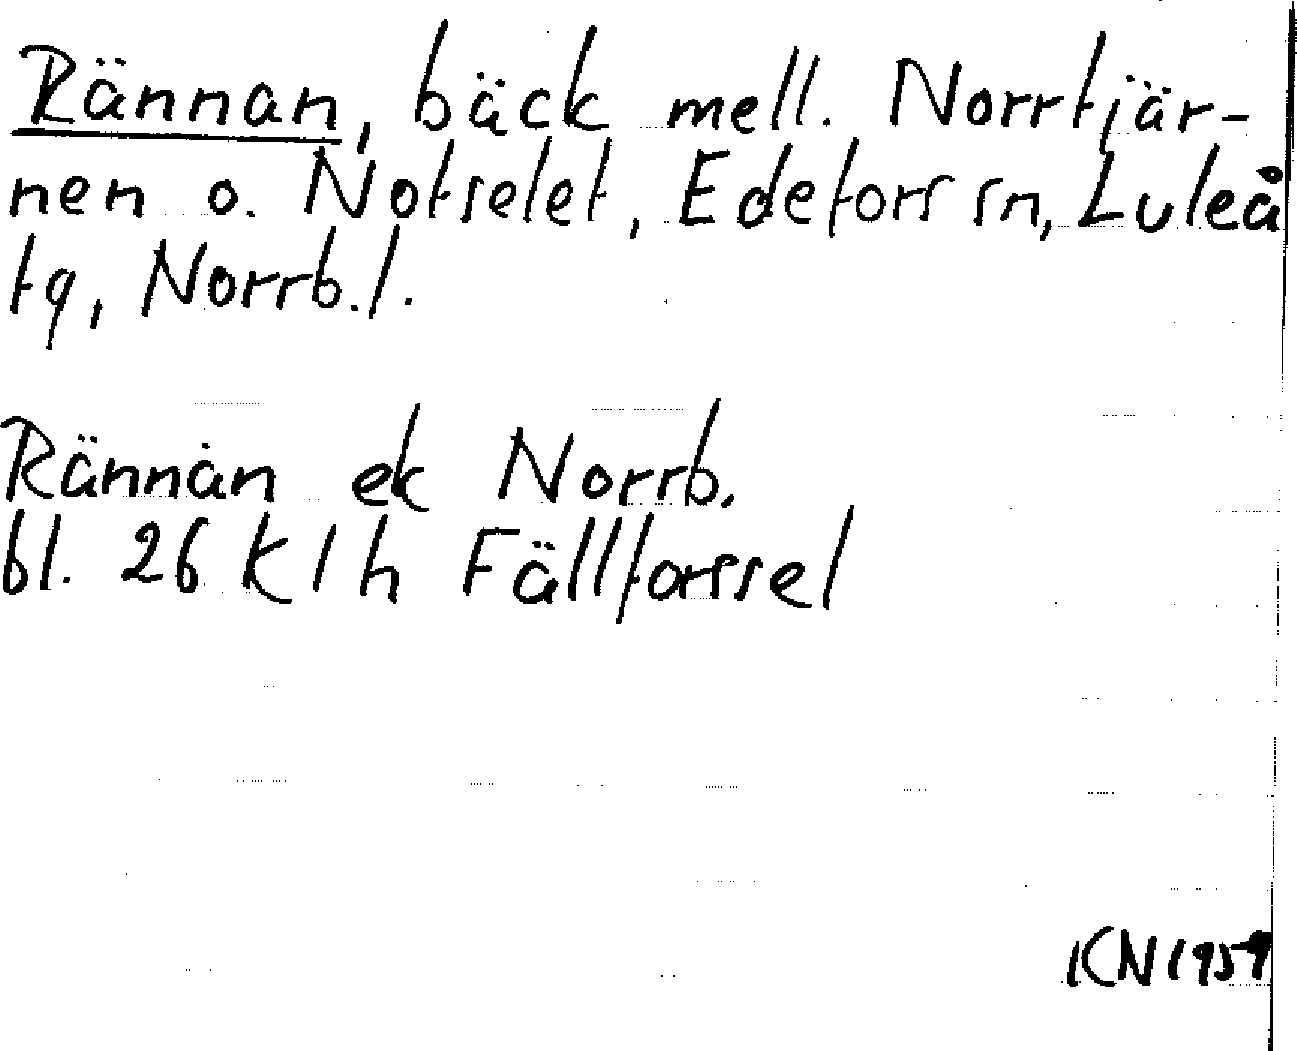 Rännan, bäck mell. Norrtjär-
nen o. Notselet, Edefors sn, Luleå
tg, Norrb. l.
Rännan ek Norrb.
bl. 26 K l h Fällforssel
KN 1959